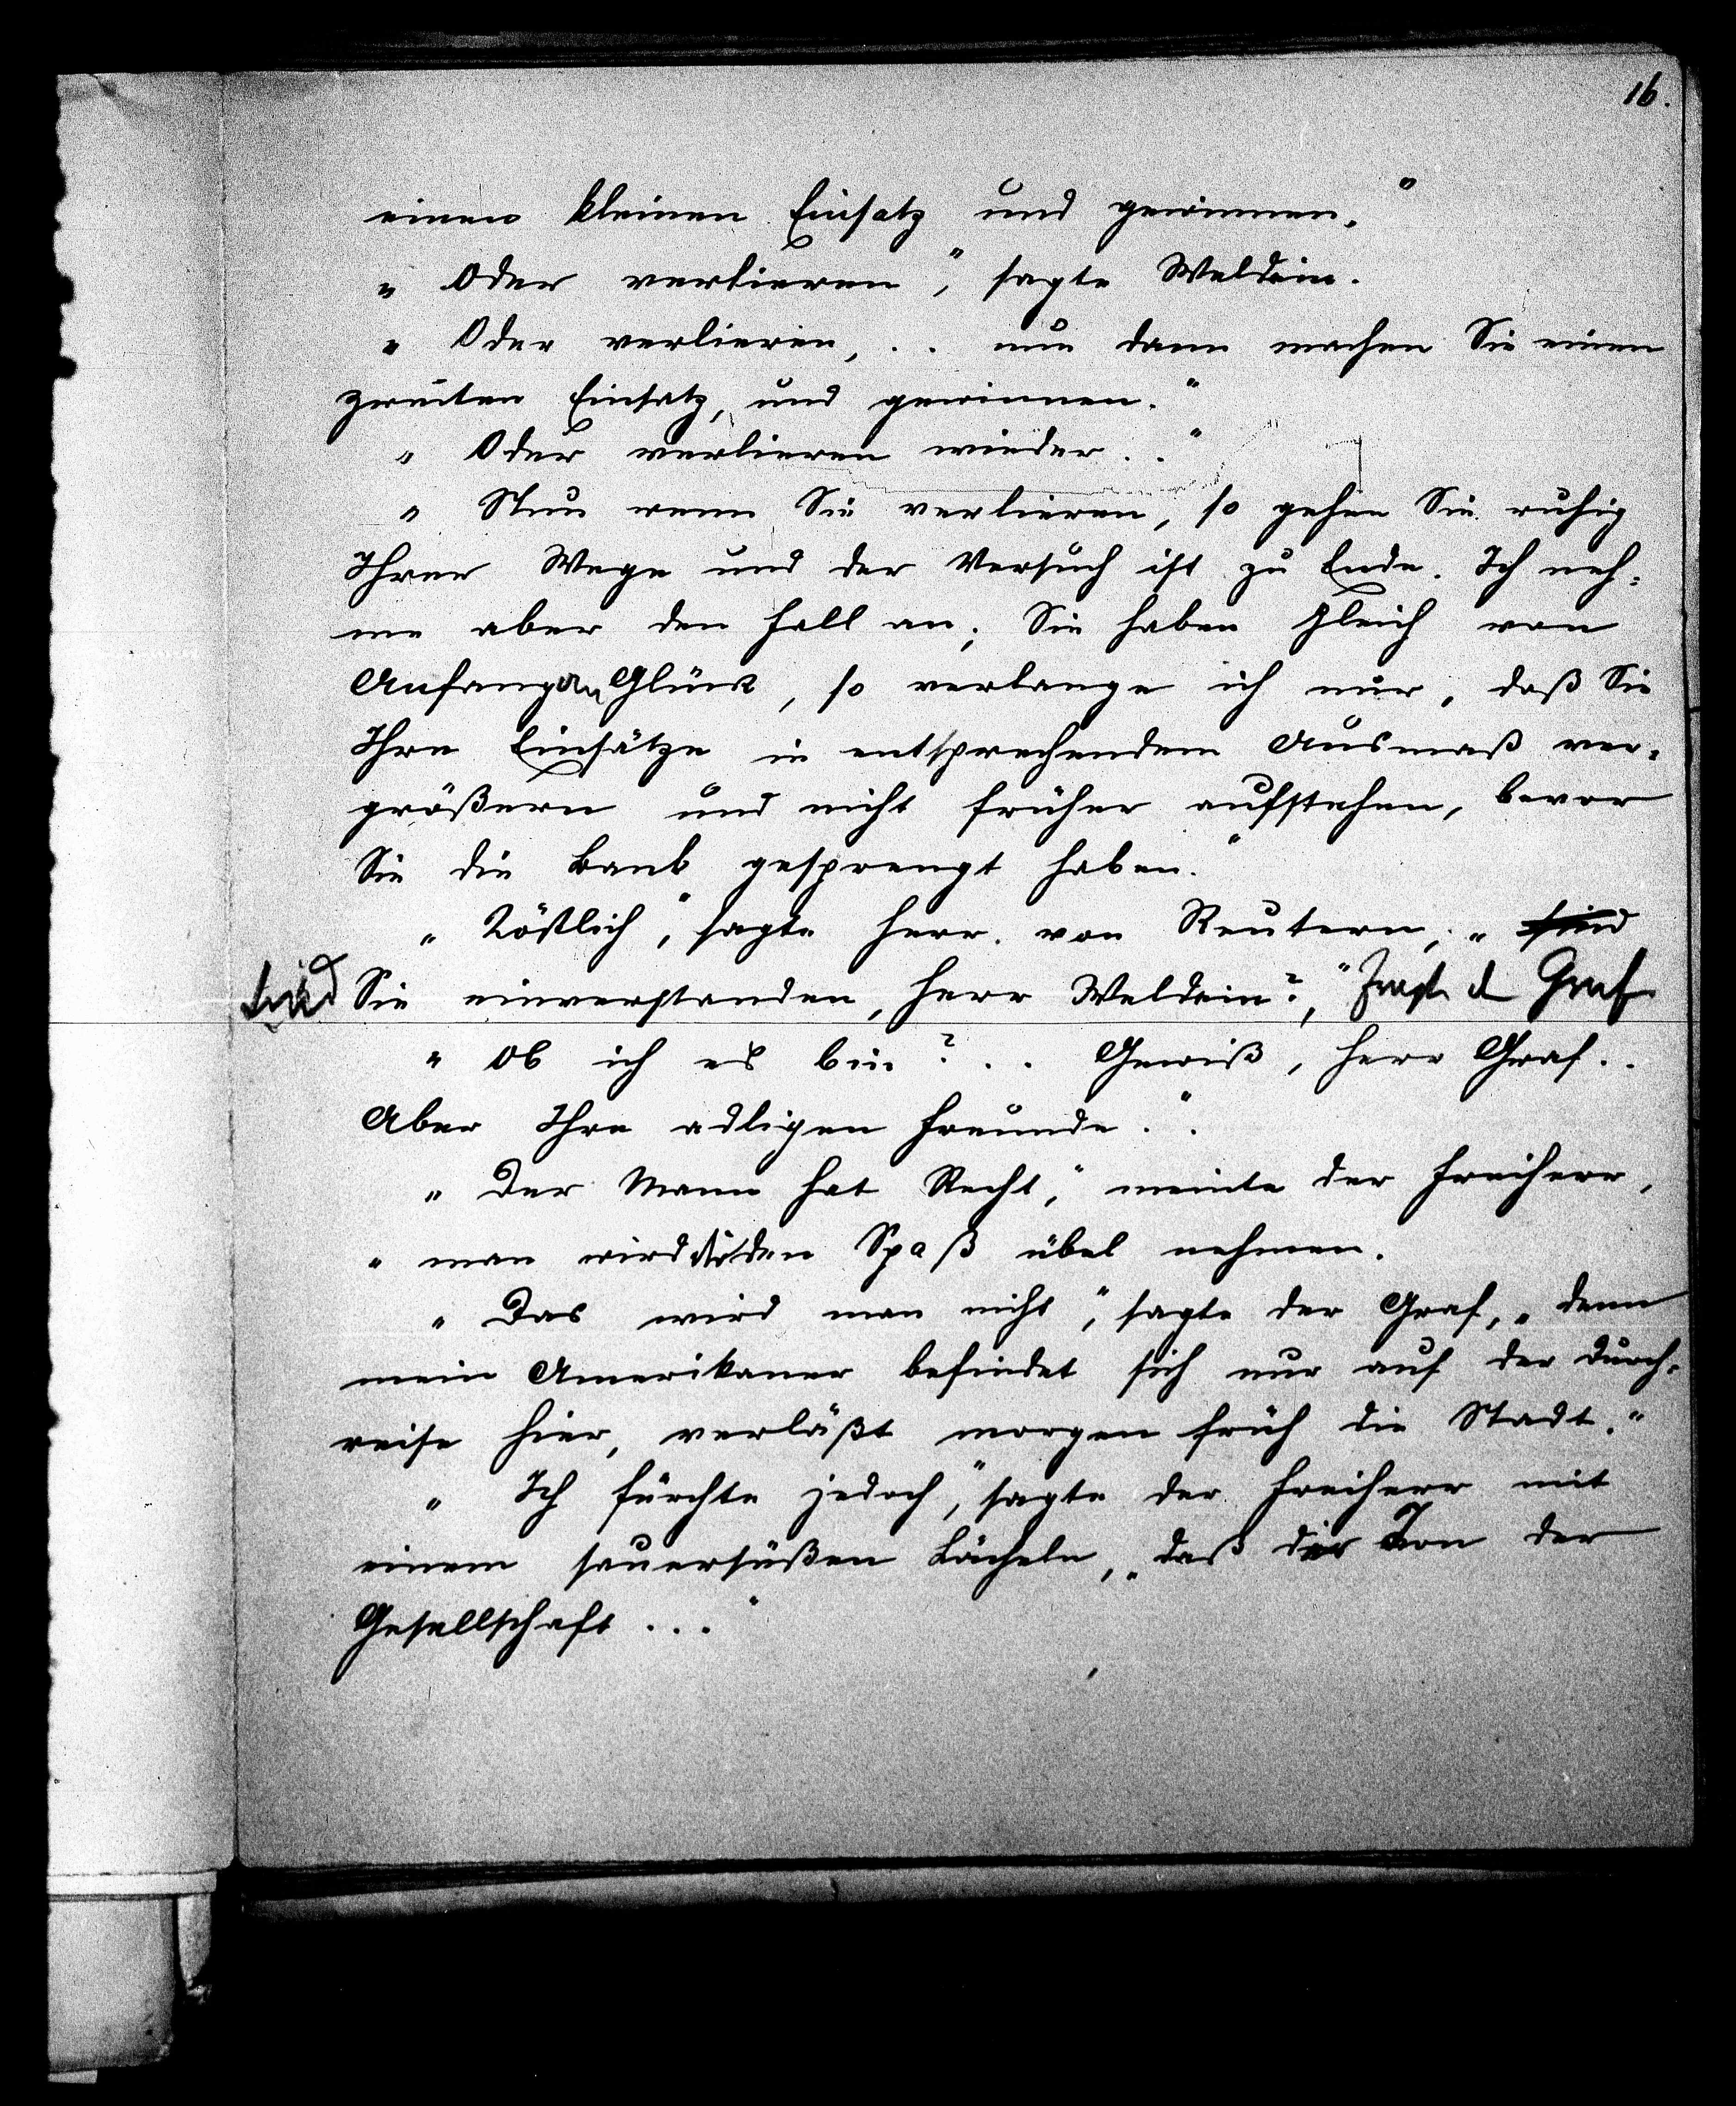 16.
einen kleinen Einsatz und gewinnen."
„Oder verlieren", sagte Weldein.
„Oder verlieren, .. nun dann machen Sie einen
zweiten Einsatz, und gewinnen."
„Oder verlieren wieder .."
„Nun wenn Sie verlieren, so gehen Sie ruhig
Ihrer Wege und der Versuch ist zu Ende. Ich neh-
me aber den Fall an, Sie haben gleich von
Anfang an Glück, so verlange ich nur, daß Sie
Ihre Einsätze in entsprechendem Ausmaß ver-
größern und nicht früher aufstehen, bevor
Sie die Bank gesprengt haben."
„Köstlich," sagte Herr von Reutern, „ sind
Sind Sie einverstanden, Herr Weldein?," fragte d Graf
„Ob ich es bin? .. Gewiß, Herr Graf ..
Aber Ihre adligen Freunde .."
„Der Mann hat Recht," meinte der Freiherr,
„man wird dir den Spaß übel nehmen.
„Das wird man nicht", sagte der Graf, „denn
mein Amerikaner befindet sich nur auf der Durch-
reise hier, verläßt morgen früh die Stadt."
„Ich fürchte jedoch," sagte der Freiherr mit
einem sauersüßen Lächeln, „daß der Ton der
Gesellschaft ..."